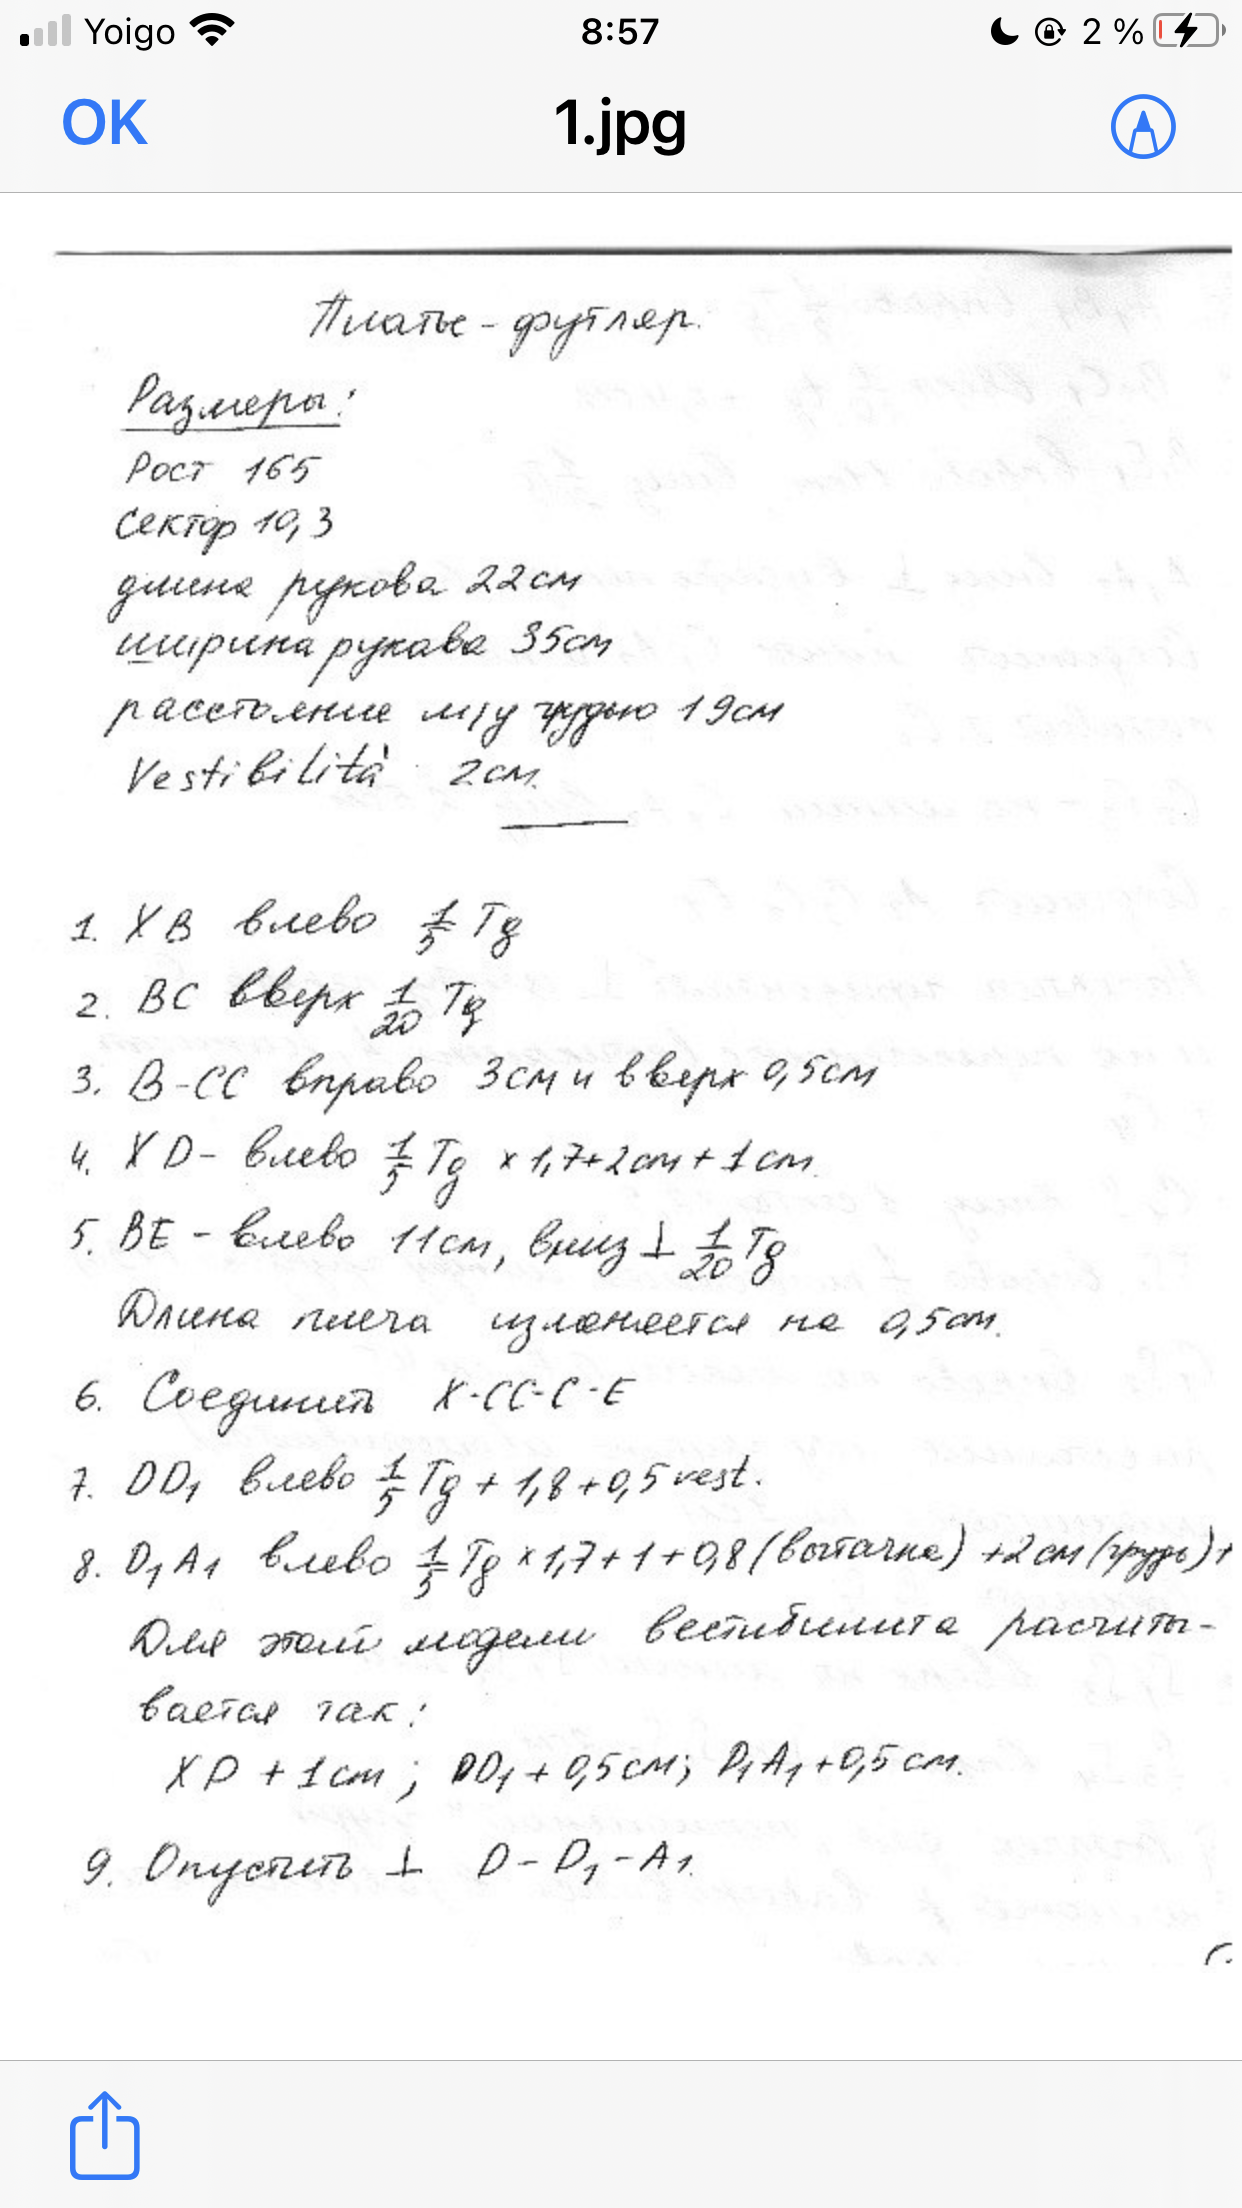 Yoigo 8:57 2 %
OK 1.jpg
Платье - футляр.
Размеры:
Рост 165
Сектор 10,3
длина рукова 22см
ширина рукава 35см
расстояние м/у грудью 19см
Vestibilità 2см.
1. XB влево 1/5 Tg
2. BC вверх 1/20 Tg
3. B-CC вправо 3см и вверх 0,5см
4. XD- влево 1/5 Tg × 1,7+2см+1см.
5. BE - влево 11см, вниз ⊥ 1/20 Tg
Длина плеча изменяется на 0,5см.
6. Соединить X-CC-C-E
7. DD1 влево 1/5 Tg + 1,8+0,5 vest.
8. D1A1 влево 1/5 Tg × 1,7+1+0,8 (вытачка) +2см (грудь)+
Для этой модели вестибилита расчиты-
вается так:
XD + 1cm; DD1 + 0,5см; D1A1 +0,5см.
9. Опустить ⊥ D-D1-A1.